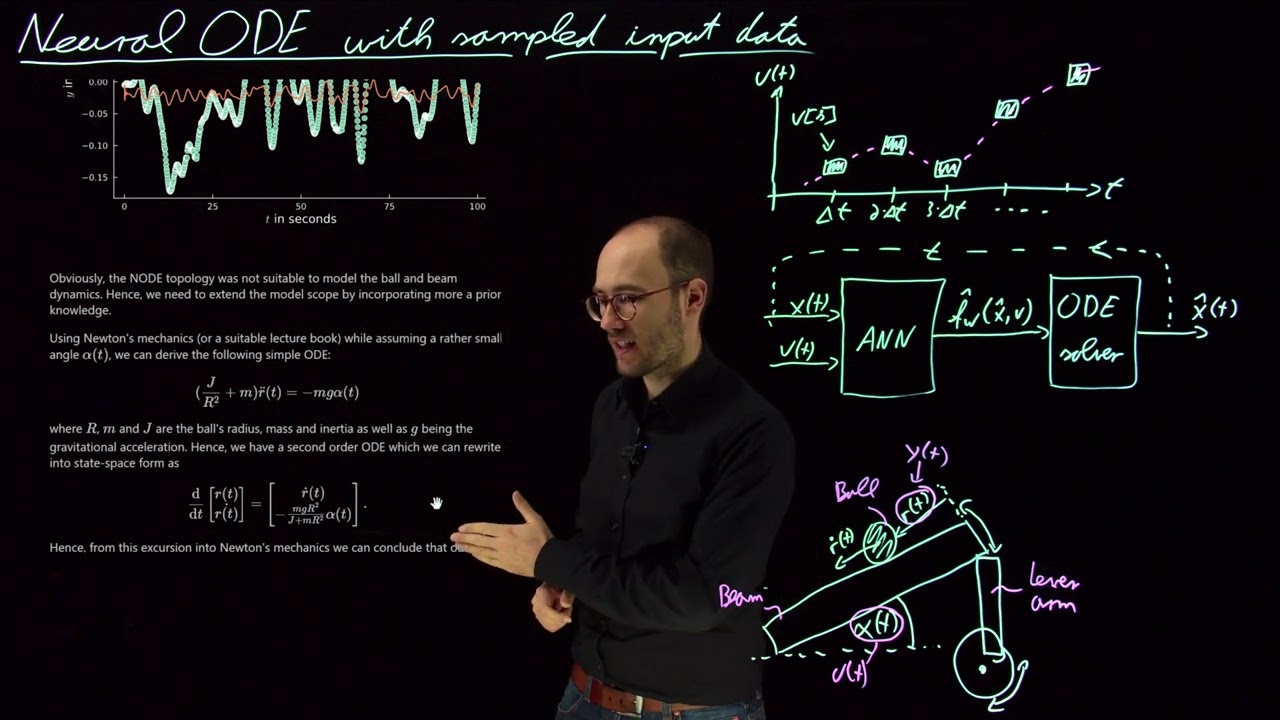 Neural ODE with sampled input data
0.00
−0.05
−0.10
−0.15
y in
0 25 50 75 100
t in seconds
Obviously, the NODE topology was not suitable to model the ball and beam
dynamics. Hence, we need to extend the model scope by incorporating more a prior
knowledge.
Using Newton's mechanics (or a suitable lecture book) while assuming a rather small
angle α(t), we can derive the following simple ODE:
(J/R² + m)r̈(t) = −mgα(t)
where R, m and J are the ball's radius, mass and inertia as well as g being the
gravitational acceleration. Hence, we have a second order ODE which we can rewrite
into state-space form as
d/dt [r(t) ṙ(t)] = [ṙ(t) −mgR²/(J+mR²) α(t)].
Hence, from this excursion into Newton's mechanics we can conclude that
u(t)
t
Δt 2·Δt 3·Δt ....
x(t)
u(t)
ANN
f̂w(x̂,u)
ODE
solver
x̂(t)
y(t)
Ball
r(t)
ṙ(t)
Beam
Lever
arm
α(t)
u(t)